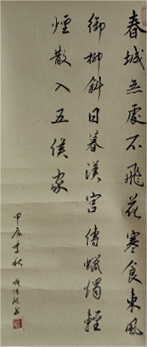 春城無處不飛花寒食東風
御柳斜日暮漢宮傳蠟燭輕
煙散入五侯家
甲辰春秋